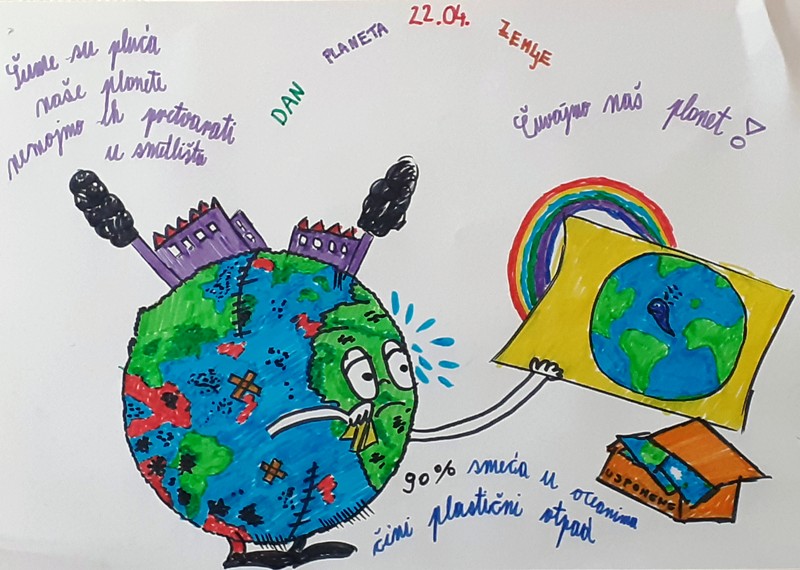 DAN PLANETA 22.04. ZEMLJE
Šume su pluća
naše planete
nemojmo ih pretvarati
u smetlišta
Čuvajmo naš planet!
90% smeća u oceanima
čini plastični otpad
USPOMENE